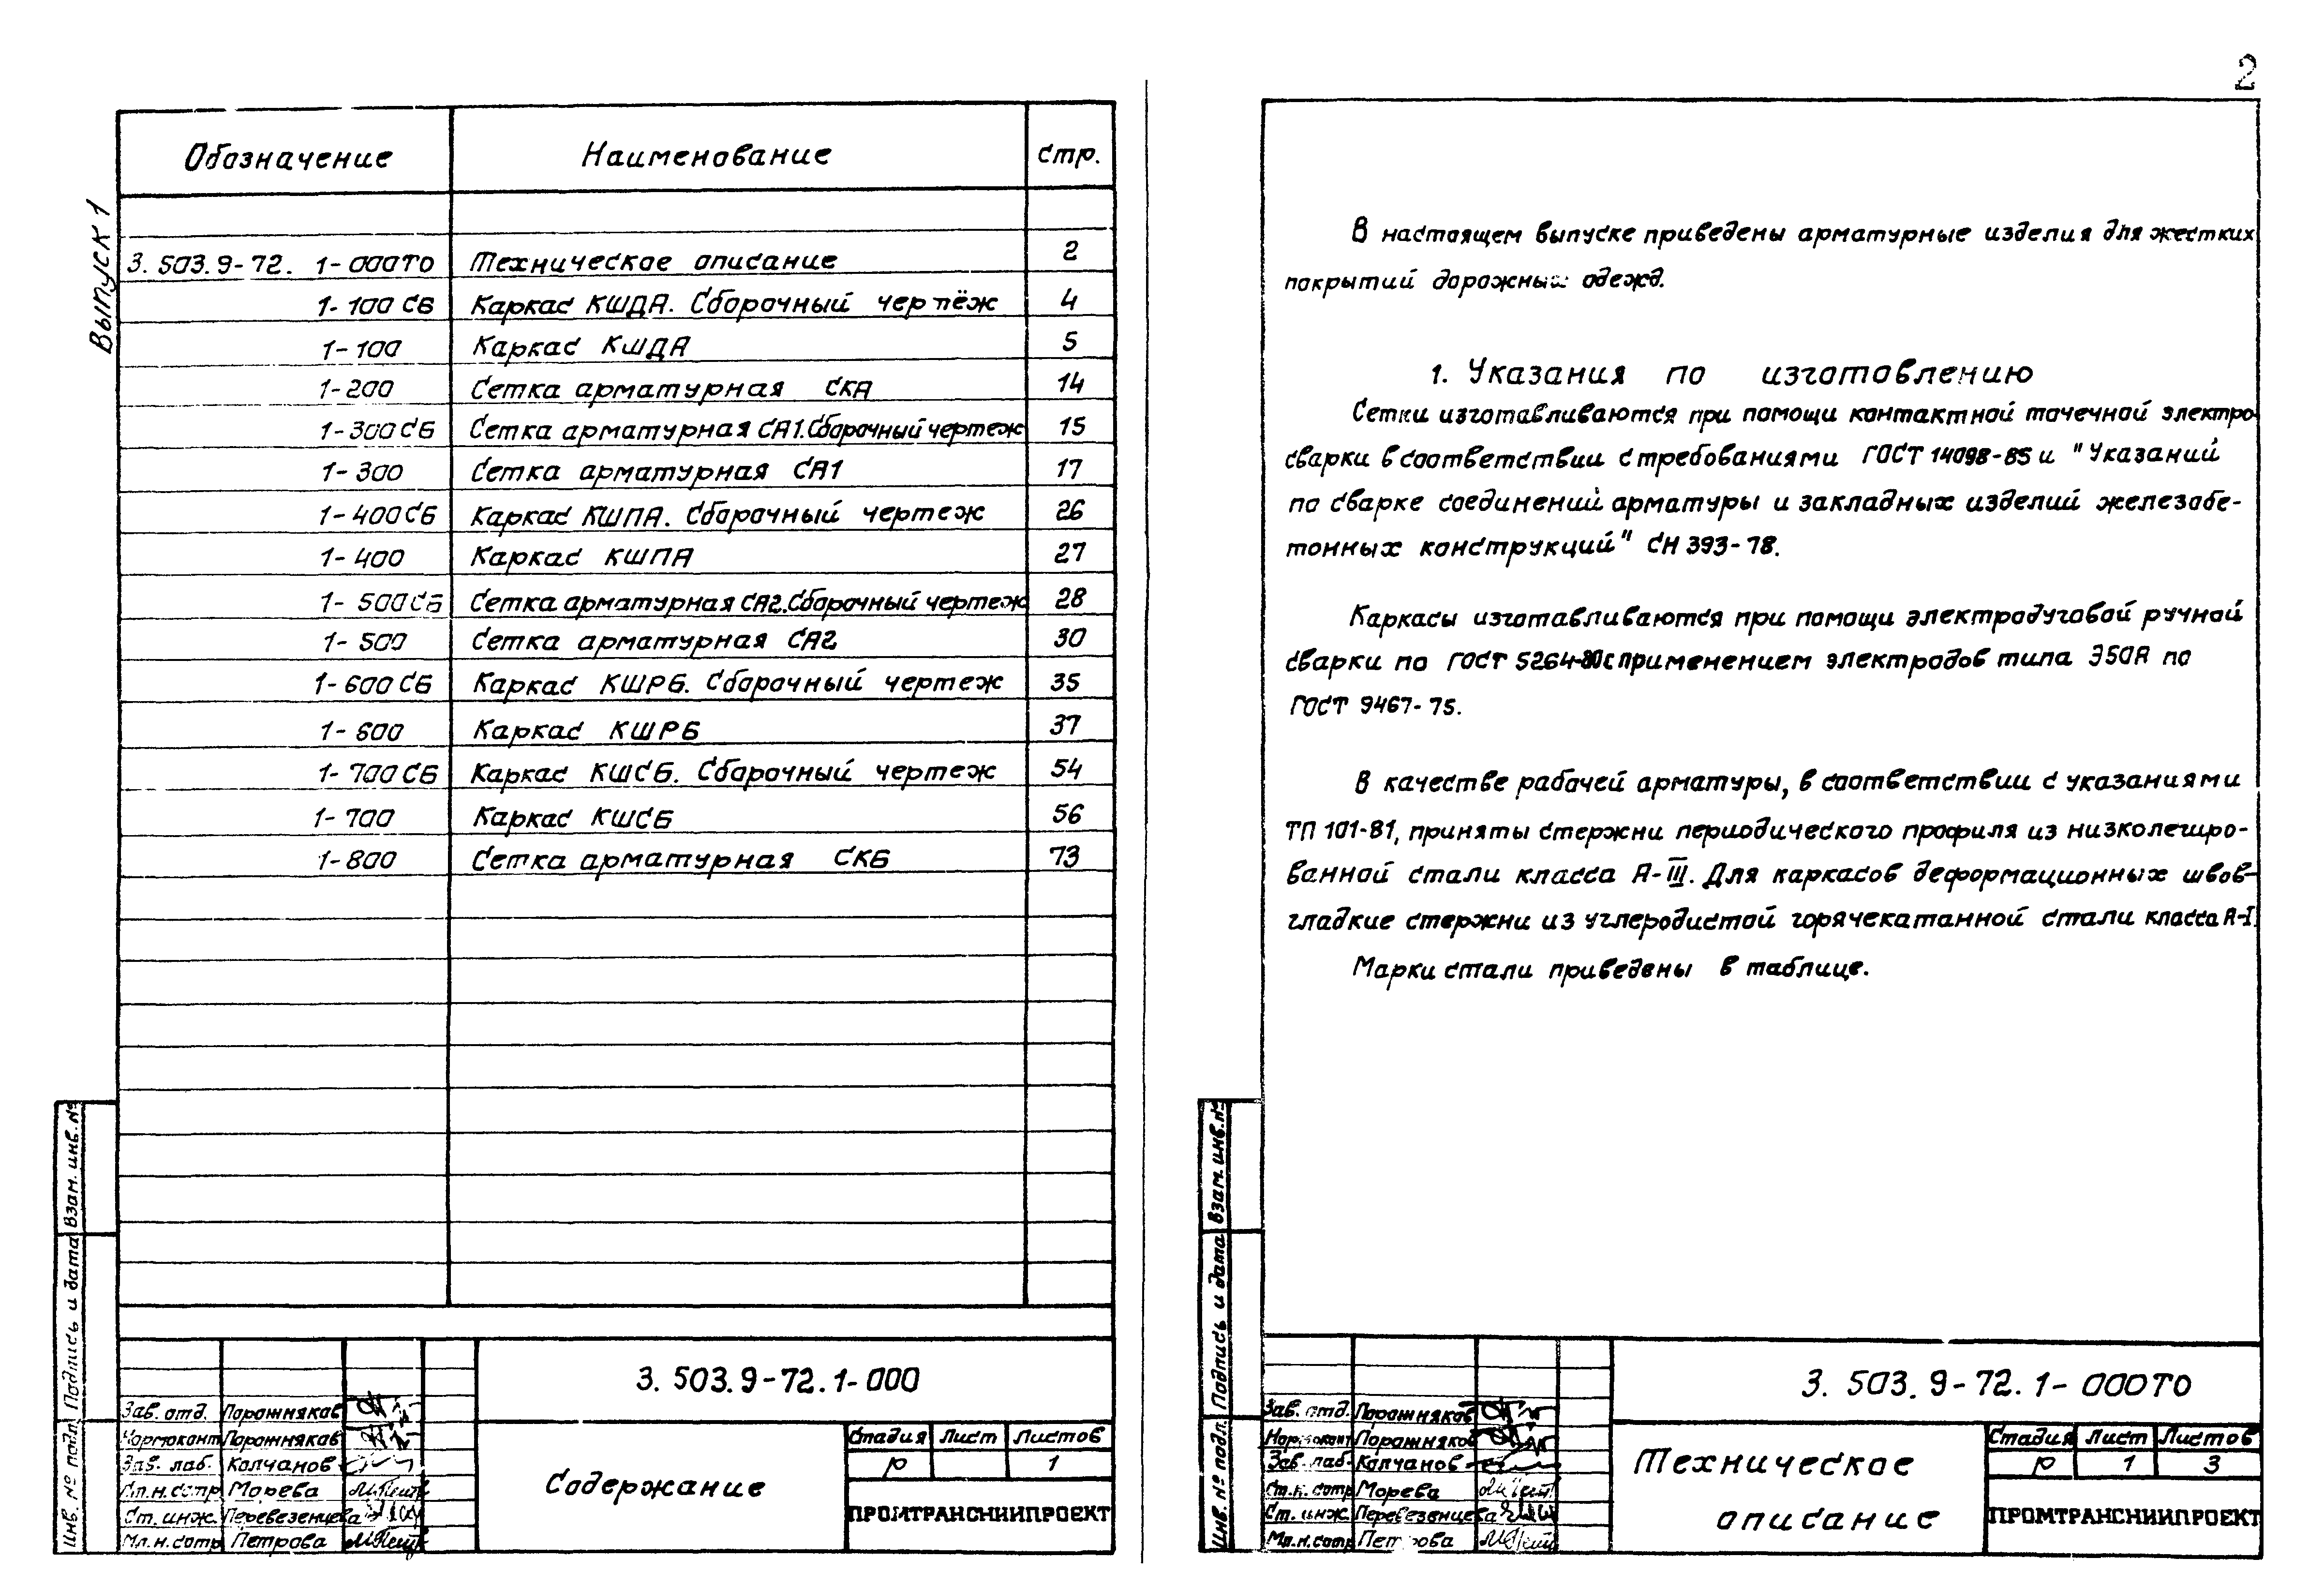 2
Выпуск 1
Обозначение Наименование Стр.
3.503.9-72. 1-000ТО Техническое описание 2
1-100 СБ Каркас КШДА. Сборочный чертёж 4
1-100 Каркас КШДА 5
1-200 Сетка арматурная СКА 14
1-300 СБ Сетка арматурная СА1. Сборочный чертеж 15
1-300 Сетка арматурная СА1 17
1-400 СБ Каркас КШПА. Сборочный чертеж 26
1-400 Каркас КШПА 27
1-500 СБ Сетка арматурная СА2. Сборочный чертеж 28
1-500 Сетка арматурная СА2 30
1-600 СБ Каркас КШРБ. Сборочный чертеж 35
1-600 Каркас КШРБ 37
1-700 СБ Каркас КШСБ. Сборочный чертеж 54
1-700 Каркас КШСБ 56
1-800 Сетка арматурная СКБ 73
Инв. № подл. Подпись и дата Взам. инв. №
3.503.9-72.1-000
Зав. отд. Порожняков
Нормоконт Порожняков
Зав. лаб. Колчанов
Ст.н.сотр Морева
Ст. инж. Перевезенцева
Мл.н.сотр Петрова
Содержание
Стадия Лист Листов
Р 1
ПРОМТРАНСНИИПРОЕКТ
В настоящем выпуске приведены арматурные изделия для жестких
покрытий дорожных одежд.
1. Указания по изготовлению
Сетки изготавливаются при помощи контактной точечной электро-
сварки в соответствии с требованиями ГОСТ 14098-85 и "Указаний
по сварке соединений арматуры и закладных изделий железобе-
тонных конструкций" СН 393-78.
Каркасы изготавливаются при помощи электродуговой ручной
сварки по ГОСТ 5264-80 с применением электродов типа Э50А по
ГОСТ 9467-75.
В качестве рабочей арматуры, в соответствии с указаниями
ТП 101-81, приняты стержни периодического профиля из низколегиро-
ванной стали класса А-III. Для каркасов деформационных швов-
гладкие стержни из углеродистой горячекатанной стали класса А-I.
Марки стали приведены в таблице.
Инв. № подл. Подпись и дата Взам. инв. №
3.503.9-72.1-000ТО
Зав. отд. Порожняков
Нормоконт Порожняков
Зав. лаб. Колчанов
Ст.н.сотр Морева
Ст. инж. Перевезенцева
Мл.н.сотр Петрова
Техническое
описание
Стадия Лист Листов
Р 1 3
ПРОМТРАНСНИИПРОЕКТ